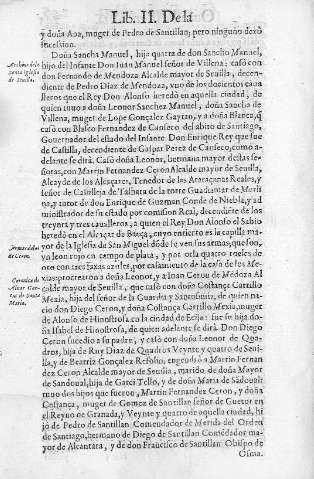 Lib. II. De la
y doña Ana, muger de Pedro de Santillan; pero ninguno dexò
sucession.
Doña Sancha Manuel, hija quarta de don Sancho Manuel,
hijo del Infante Don Iuan Manuel señor de Villena: casò con
don Fernando de Mendoza Alcalde mayor de Seuilla, decen-
diente de Pedro Diaz de Mendoza, vno de los docientos caua
lleros que el Rey Don Alonso heredò en aquella ciudad, de
quien tuuo a doña Leonor Sanchez Manuel, doña Sancha de
Villena, muger de Lope Gonçalez Gaytan, y a doña Blanca, q̃
casò con Blasco Fernandez de Cansero, del abito de Santiago,
Gouernador del estado del Infante Don Enrique Rey que fue
de Castilla, decendiente de Gaspar Perez de Cansero, como a-
delante se dirà. Casò doña Leonor, hermana mayor destas se-
ñoras, con Martin Fernandez Ceron Alcalde mayor de Seuilla,
Alcayde de los Alcaçares, Tenedor de las Ataraçanas Reales, y
señor de Castilleja de Talhara de la torre Guadiamar de Meri
na, y tutor de don Enrique de Guzman Conde de Niebla, y ad
ministrador de su estado por comision Real, decendiente de los
treynta y tres caualleros, a quien el Rey Don Alonso el Sabio
heredò en el Alcaçar de Baeça, cuyo entierro es la capilla ma-
yor de la Iglesia de San Miguel dõde se ven sus armas, que son,
vn leon rojo en campo de plata, y por orla quatro roeles de
oro con tres faxas azules, por casamiento de la casa de los Me-
xias: procrearon a doña Leonor, y a Iuan Ceron de Mẽdoza Al
calde mayor de Seuilla, que casò con doña Costança Carrillo
Mexia, hija del señor de la Guardia y Santofimia, de quien na-
cio don Diego Ceron, y doña Costança Carrillo Mexia, muger
de Alonso de Hinostrosa en la ciudad de Ecija: fue su hija do-
ña Isabel de Hinostrosa, de quien adelante se dirà. Don Diego
Ceron sucedio a su padre, y casò con doña Leonor de Qua-
dros, hija de Ruy Diaz de Quadros Veynte y quatro de Seui-
lla, y de Beatriz Gonçalez Rosio: engendrò a Martin Fernan-
dez Ceron Alcalde mayor de Seuilla, marido de doña Mayor
de Sandoual, hija de Garci Tello, y de doña Maria de Sãdoual:
tuuo dos hijos que fueron, Martin Fernandez Ceron, y doña
Costança, muger de Gomez de Santillan señor de Guetor en
el Reyno de Granada, y Veynte y quatro de aquella ciudad, hi
jo de Pedro de Santillan Comendador de Merida del Orden
de Santiago, hermano de Diego de Santillan Comẽdador ma-
yor de Alcantara, y de don Francisco de Santillan Obispo de
Osma.
Archivo de la
santa Iglesia
de Seuilla.
Armas de los
de Ceron.
de Santa
Maria.